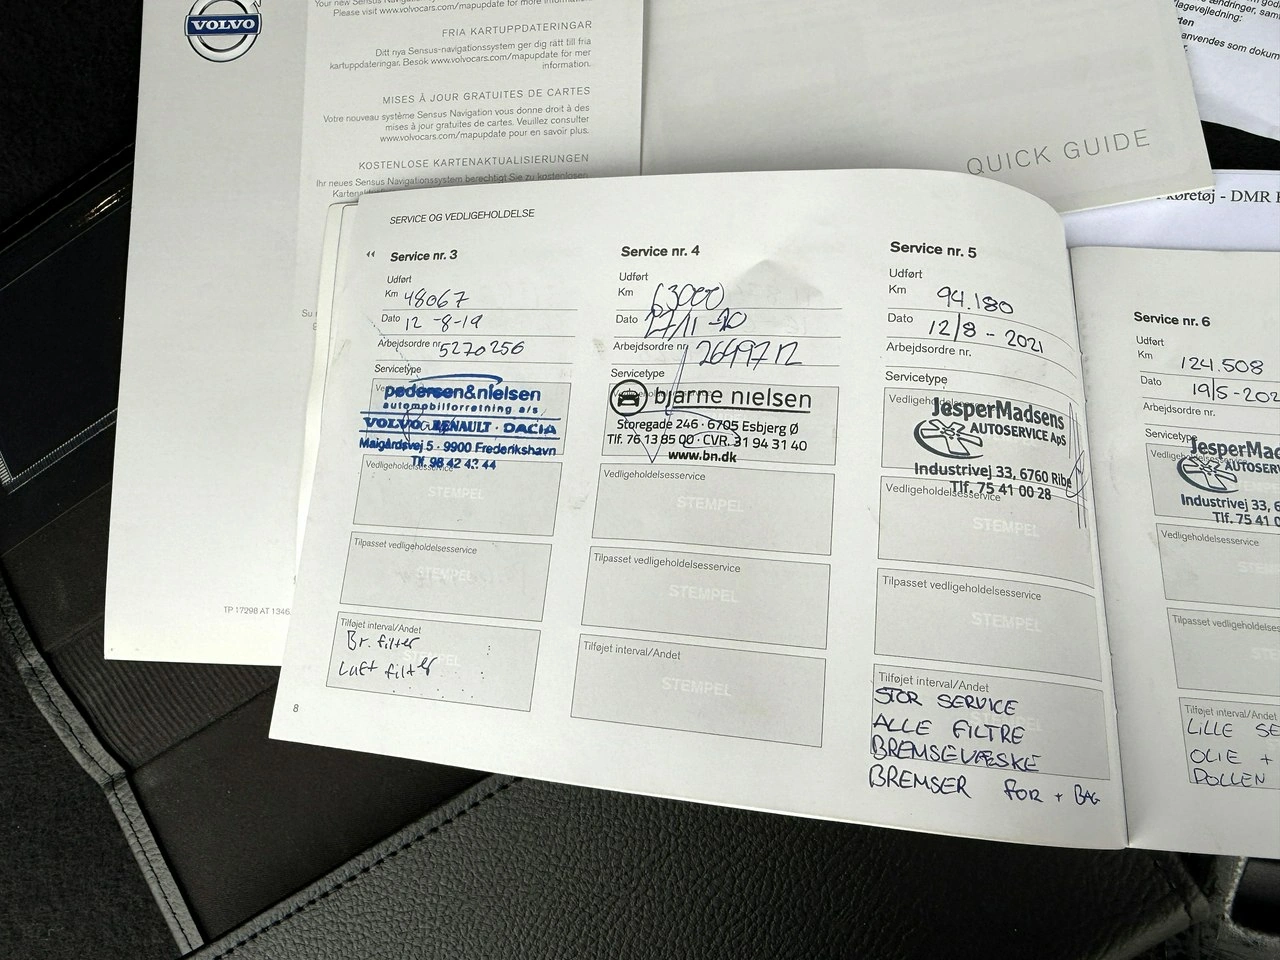 VOLVO
Please visit www.volvocars.com/mapupdate for more information.
FRIA KARTUPPDATERINGAR
Ditt nya Sensus-navigationssystem ger dig rätt till fria
kartuppdateringar. Besök www.volvocars.com/mapupdate för mer
information.
MISES À JOUR GRATUITES DE CARTES
Votre nouveau système Sensus Navigation vous donne droit à des
mises à jour gratuites de cartes. Veuillez consulter
www.volvocars.com/mapupdate pour en savoir plus.
KOSTENLOSE KARTENAKTUALISIERUNGEN
Ihr neues Sensus Navigationssystem berechtigt Sie zu kostenlosen
TP 17298 AT 1346
QUICK GUIDE
anvendes som dokum
køretøj - DMR
SERVICE OG VEDLIGEHOLDELSE
‹‹ Service nr. 3
Udført
Km 48067
Dato 12-8-19
Arbejdsordre nr. 5270256
Servicetype
pedersen&nielsen
automobilforretning a/s
VOLVO · RENAULT · DACIA
Maigårdsvej 5 · 9900 Frederikshavn
Tlf. 98 42 42 44
Vedligeholdelsesservice
STEMPEL
Tilpasset vedligeholdelsesservice
STEMPEL
Tilføjet interval/Andet
STEMPEL
Br. filter
Luft filter
8
Service nr. 4
Udført
Km 63000
Dato 27/11-20
Arbejdsordre nr.
Servicetype
bjarne nielsen
Storegade 246 · 6705 Esbjerg Ø
Tlf. 76 13 85 00 · CVR. 31 94 31 40
www.bn.dk
Vedligeholdelsesservice
STEMPEL
Tilpasset vedligeholdelsesservice
STEMPEL
Tilføjet interval/Andet
STEMPEL
Service nr. 5
Udført
Km 94.180
Dato 12/8 - 2021
Arbejdsordre nr.
Servicetype
JesperMadsens
AUTOSERVICE ApS
Industrivej 33, 6760 Ribe
Tlf. 75 41 00 28
Vedligeholdelsesservice
STEMPEL
Tilpasset vedligeholdelsesservice
STEMPEL
Tilføjet interval/Andet
STOR SERVICE
ALLE FILTRE
BREMSEVÆSKE
BREMSER FOR + BAG
Service nr. 6
Udført
Km 124.508
Dato 19/5-202
Arbejdsordre nr.
Servicetype
JesperMad
AUTOSER
Industrivej 33, 6
Tlf. 75 41 0
Vedligeholdelsesservice
Tilpasset vedligeholdelsesservice
Tilføjet interval/Andet
LILLE SE
OLIE +
POLLEN